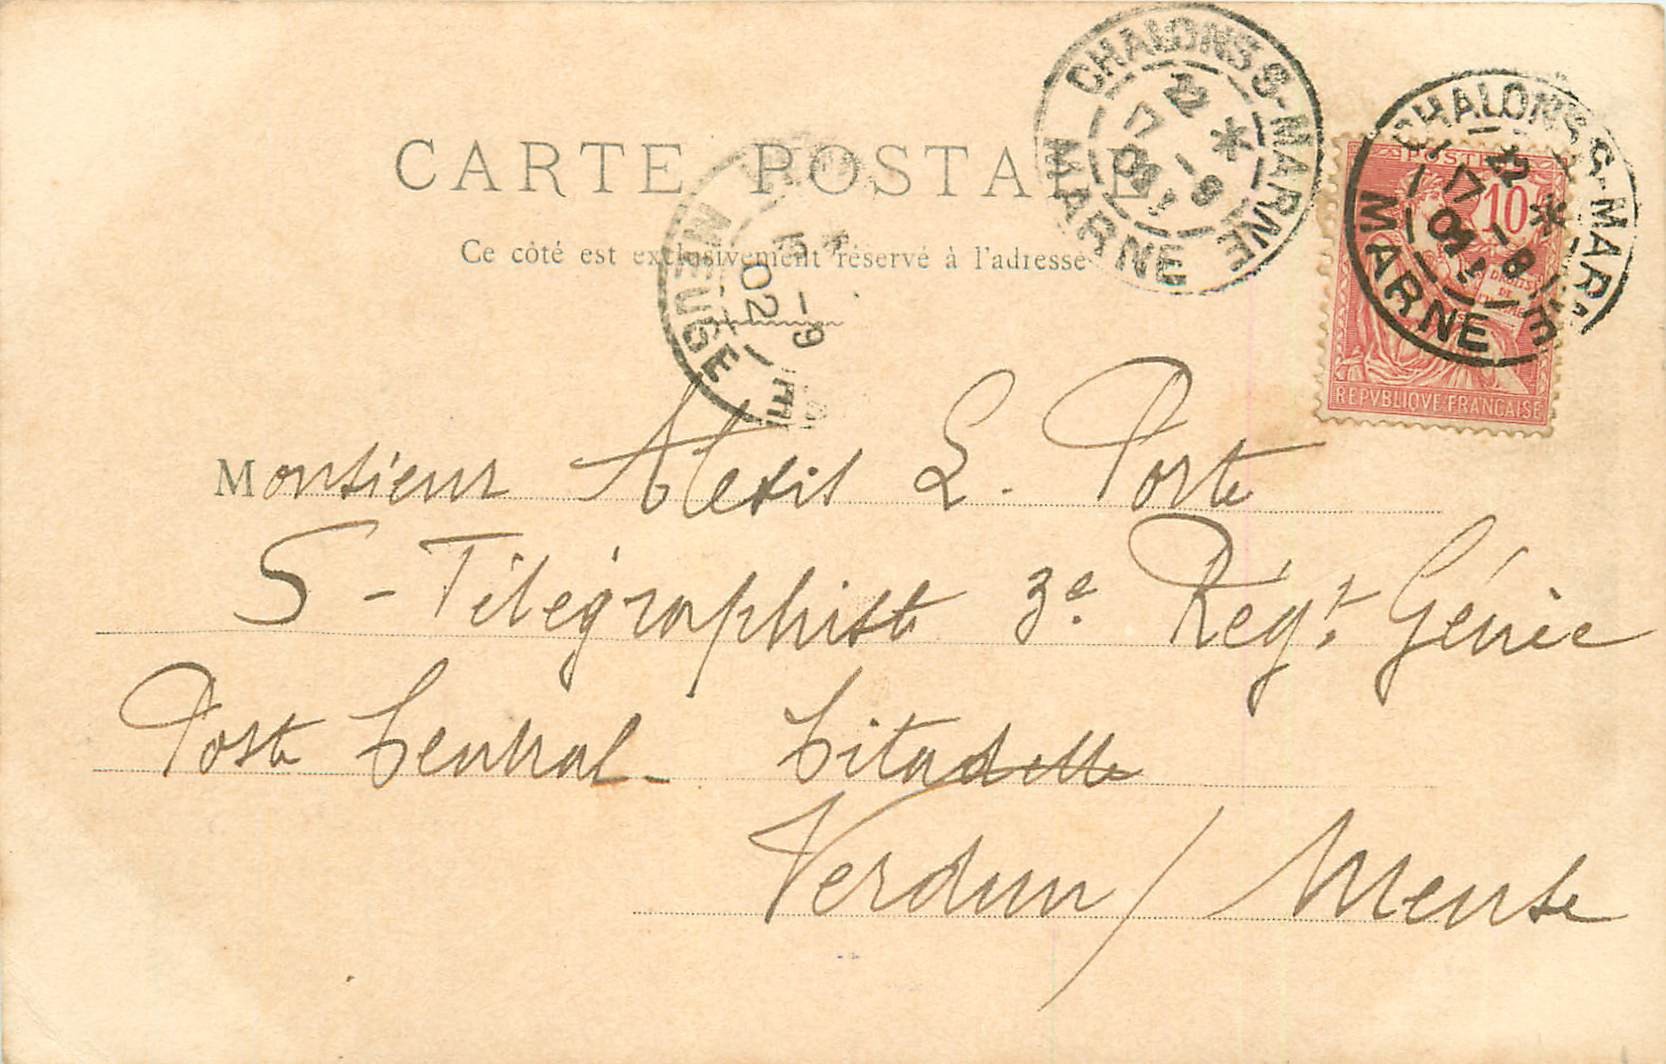 CARTE POSTALE
Ce côté est exclusivement réservé à l'adresse
CHALONS S-MARNE
MARNE
22
17 -9
02
CHALONS S-MARNE
MARNE
22
POSTES
10
DROITS
DE
REPVBLIQVE FRANCAISE
MEUSE
-9
02
Monsieur Alexis L. Porte
S-Télégraphiste 3e. Régt. Génie
Poste Central - Citadelle
Verdun / Meuse